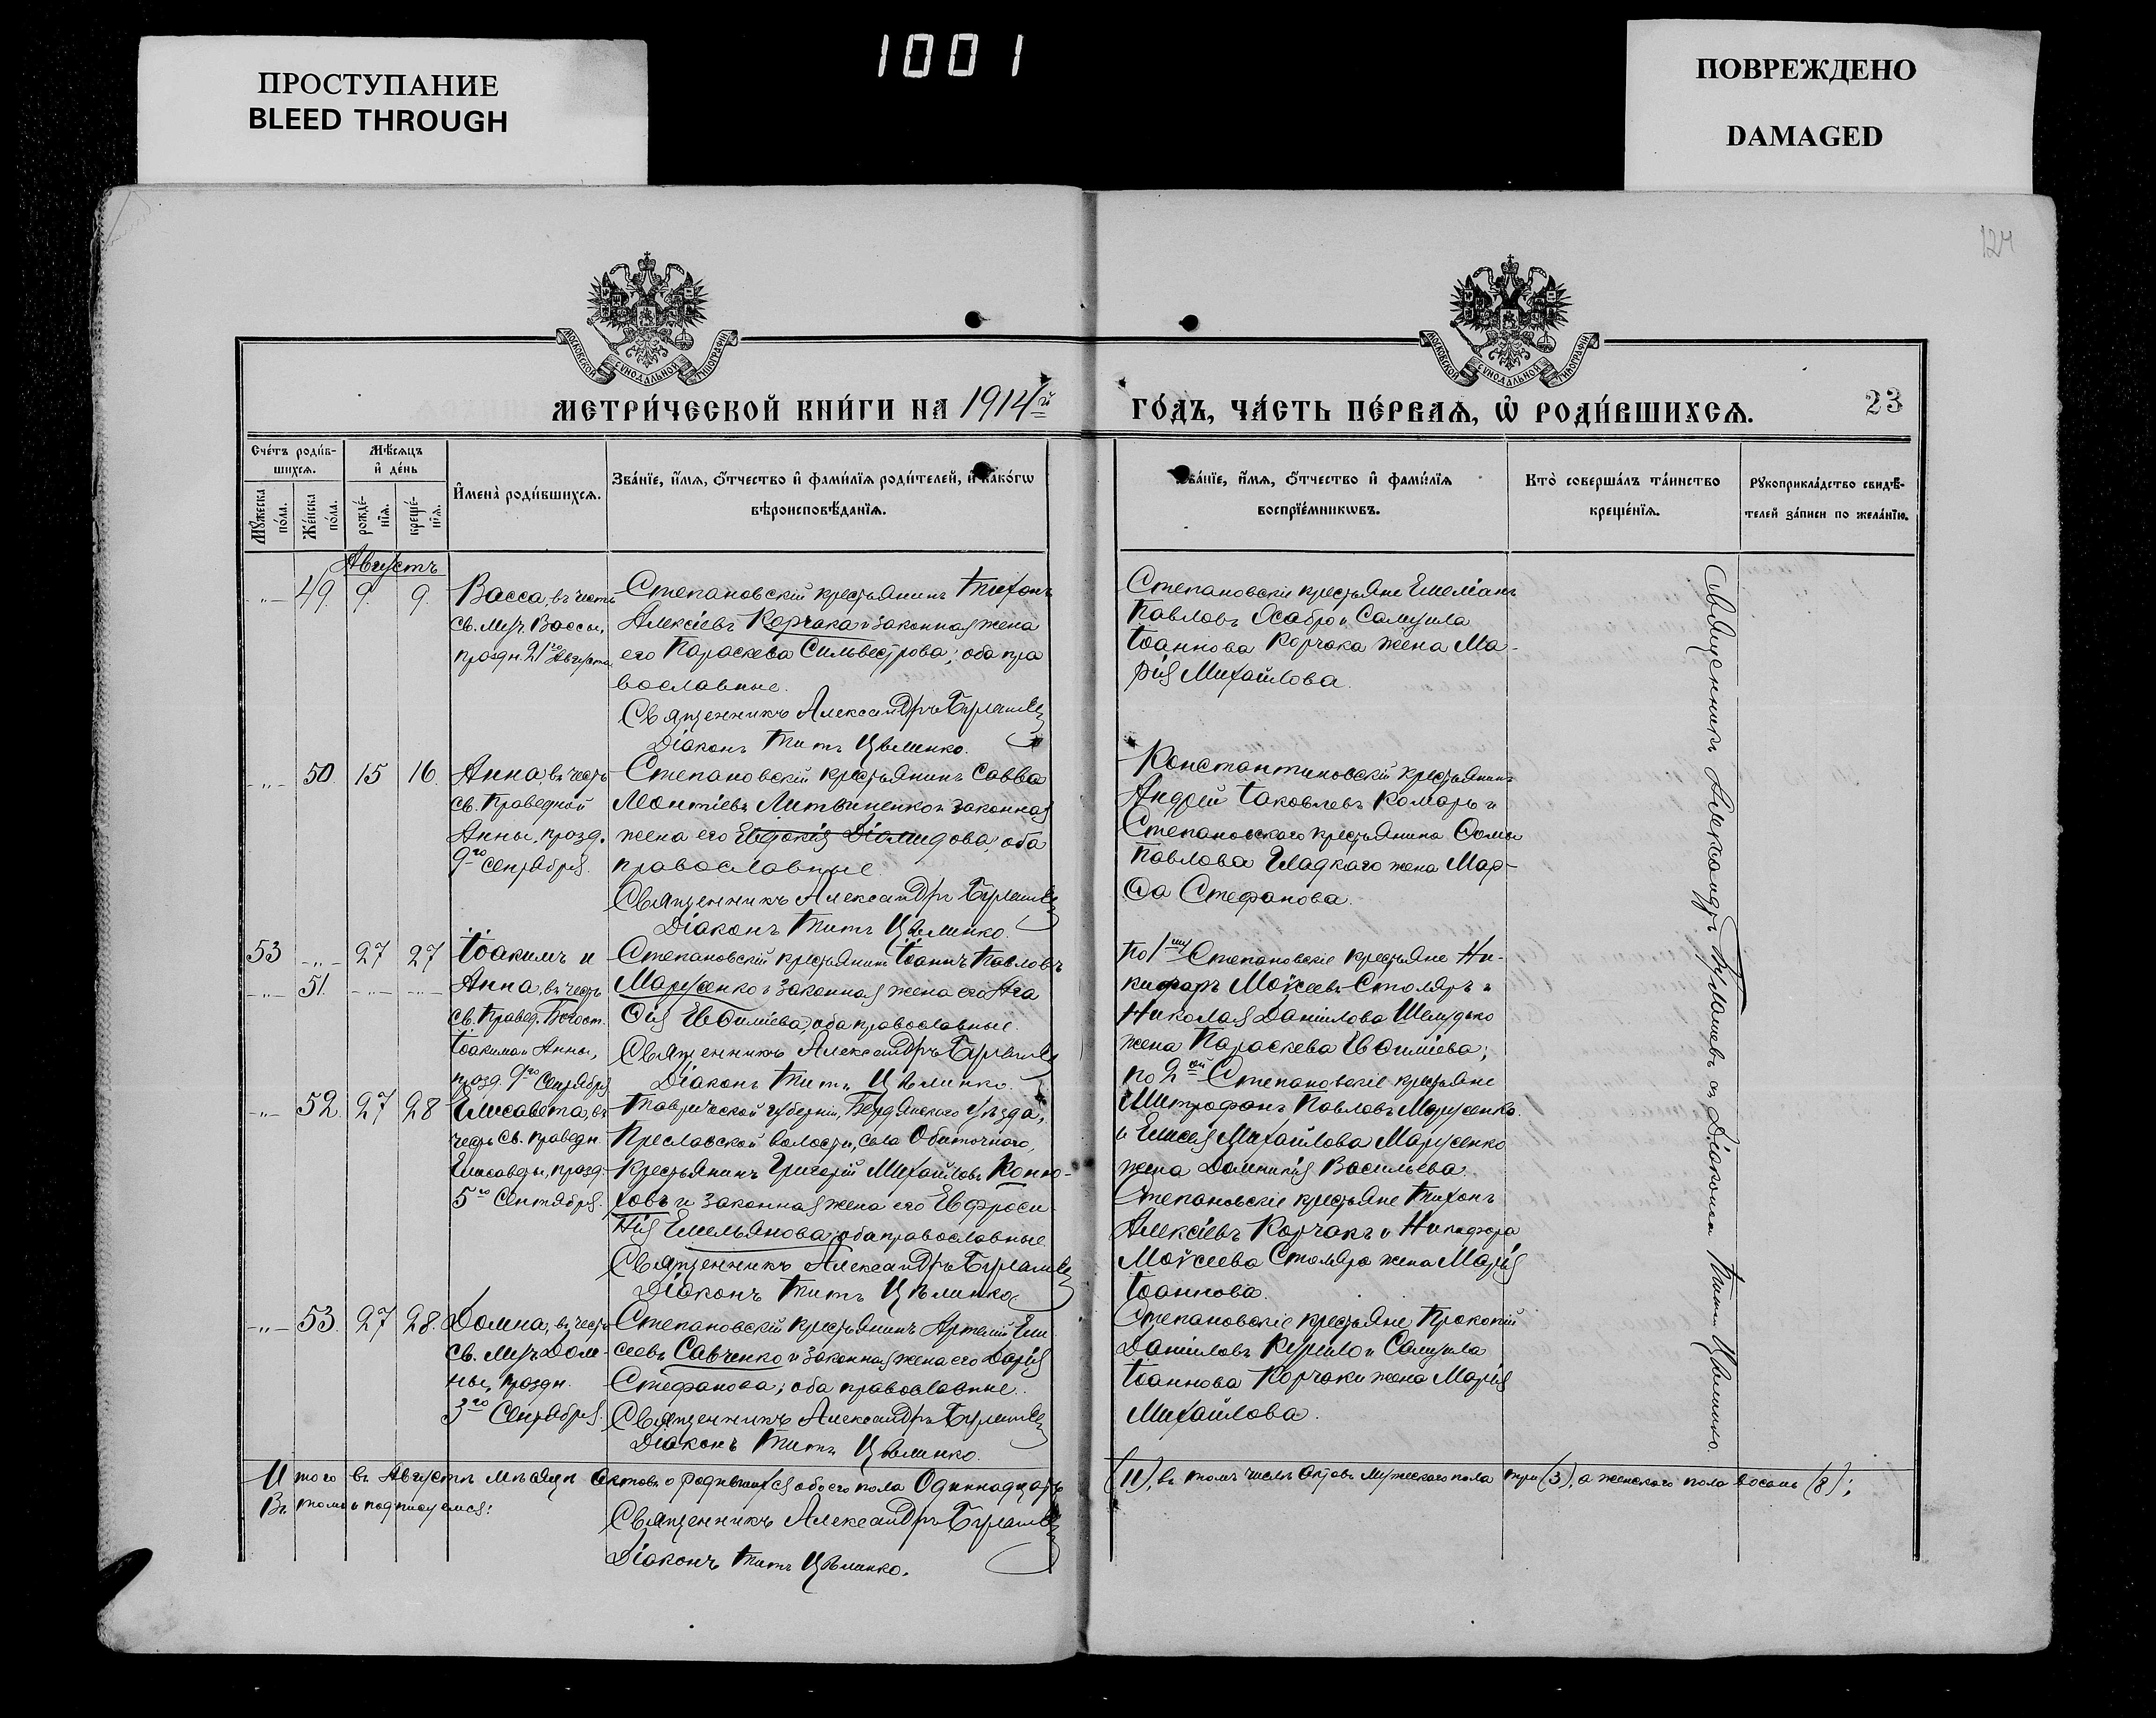 ПРОСТУПАНИЕ
BLEED THROUGH
1001
ПОВРЕЖДЕНО
DAMAGED
124
МОСКОВСКОЙ СѴНОДАЛЬНОЙ ТИПОГРАФІИ
МОСКОВСКОЙ СѴНОДАЛЬНОЙ ТИПОГРАФІИ
МЕТРИ́ЧЕСКОЙ КНИ́ГИ НА 1914й
ГО́ДЪ, ЧА́СТЬ ПЕ́РВАѦ, Ѽ РОДИ́ВШИХСѦ.
23
Сче́тъ роди́в-
шихсѧ.
Мѣ́сѧцъ
и҆ де́нь
Мꙋ́жеска
по́ла.
Же́нска
по́ла.
рожде́-
нїѧ.
креще́-
нїѧ.
И҆мена̀ роди́вшихсѧ.
Зва́нїе, и҆́мѧ, ѻ҆́тчество и҆ фами́лїѧ роди́телей, и҆ како́гѡ
вѣроисповѣ́данїѧ.
Зва́нїе, и҆́мѧ, ѻ҆́тчество и҆ фами́лїѧ
воспрїе́мникѡвъ.
Кто̀ соверша́лъ та́инство
креще́нїѧ.
Рꙋкоприкла́дство свидѣ́-
телей за́писи по жела́нїю.
Августъ
-"- 49. 9. 9.
Васса, въ честь
св. муч. Вассы,
праздн. 21го Августа
Степановскій крестьянинъ Тихонъ
Алексіевъ Корчака и законная жена
его Параскева Сильвестрова; оба пра
вославные.
Священникъ Александръ Бураше
Діаконъ Титъ Цѣлинко.
Степановскіе крестьяне Емеліанъ
Павловъ Ясабро и Самуила
Іоаннова Корчака жена Ма-
рія Михайлова.
-"- 50. 15 16.
Анна въ честь
св. Праведной
Анны, празд.
9го Сентября.
Степановскій крестьянинъ Савва
Леонтіевъ Литвиненко и законная
жена его Евдокія Діомидова; оба
православные.
Священникъ Александръ Бураше
Діаконъ Титъ Цѣлинко.
Константиновскій крестьянинъ
Андрей Іаковлевъ Комарь и
Степановскаго крестьянина Ѳомы
Павлова Гладкаго жена Мар-
ѳа Стефанова.
53 -"- 27 27
-"- 51. -"- -"-
Іоакимъ и
Анна, въ честь
св. Правед. Богоот.
Іоакима и Анны,
празд. 9го Сентября
Степановскій крестьянинъ Іоаннъ Павловъ
Марусенко и законная жена его Ага
ѳія Евѳиміева, оба православные.
Священникъ Александръ Бураше
Діаконъ Титъ Цѣлинко.
По 1му Степановскіе крестьяне Ни-
кифоръ Моѵсеевъ Столяръ и
Николая Даніилова Шелудько
жена Параскева Евѳиміева;
по 2ой Степановскіе крестьяне
Митрофанъ Павловъ Марусенко
и Елисея Михайлова Марусенко
жена Домникія Васильева.
-"- 52. 27 28
Елисавета, въ
честь св. праведн.
Елисаветы, празд.
5го Сентября.
Таврической губерніи, Бердянскаго уѣзда,
Преславской волости, села Обиточнаго,
крестьянинъ Григорій Михайловъ Коню-
ховъ и законная жена его Евфроси
нія Емельянова; оба православные.
Священникъ Александръ Бураше
Діаконъ Титъ Цѣлинко.
Степановскіе крестьяне Тихонъ
Алексіевъ Корчакъ и Никифора
Моѵсеева Столяра жена Марія
Іоаннова.
-"- 53. 27 28.
Домна, въ честь
св. муч. Дом-
ны, праздн.
3го Сентября.
Степановскій крестьянинъ Артемій Ели
сеевъ Савченко и законная жена его Дарія
Стефанова; оба православные.
Священникъ Александръ Бураше
Діаконъ Титъ Цѣлинко.
Степановскіе крестьяне Прокопій
Даніиловъ Курило и Самуила
Іоаннова Корчаки жена Марія
Михайлова.
Священникъ Александръ Бурашевъ съ Діакономъ Титомъ Цѣлинко.
Итого въ Августѣ мѣсяцѣ актовъ о родившихся обоего пола Одиннадцать
(11), въ томъ числѣ актовъ мужескаго пола три (3), а женскаго пола восемь (8);
Въ томъ и подписуемся:
Священникъ Александръ Бураше
Діаконъ Титъ Цѣлинко.